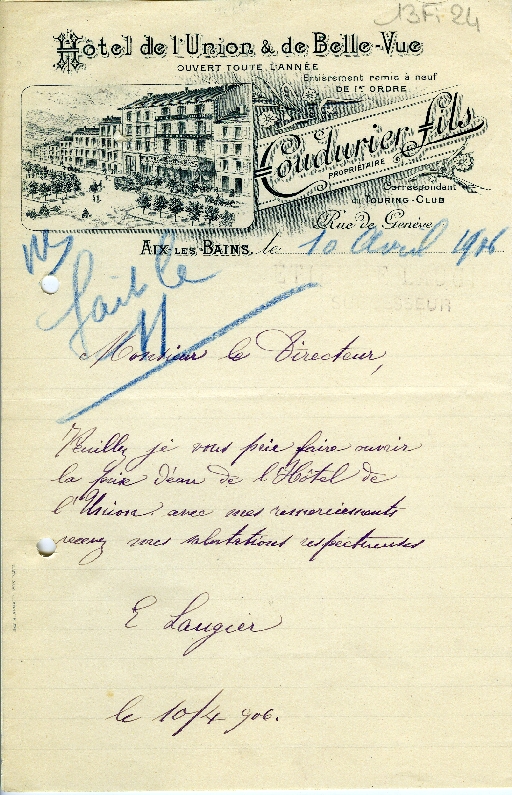 13Fi-24
Hôtel de l'Union & de Belle-Vue
OUVERT TOUTE L'ANNÉE
Entièrement remis à neuf
DE 1er ORDRE
Coudurier fils
PROPRIÉTAIRE
Correspondant
du TOURING-CLUB
Rue de Genève
AIX-LES-BAINS, le 10 Avril 1906
SUCCESSEUR
fait le
11
Monsieur le Directeur,
Veuillez je vous prie faire ouvrir
la prise d'eau de l'Hôtel de
l'Union avec mes remerciements
recevez mes salutations respectueuses
E Laugier
le 10/4 906.